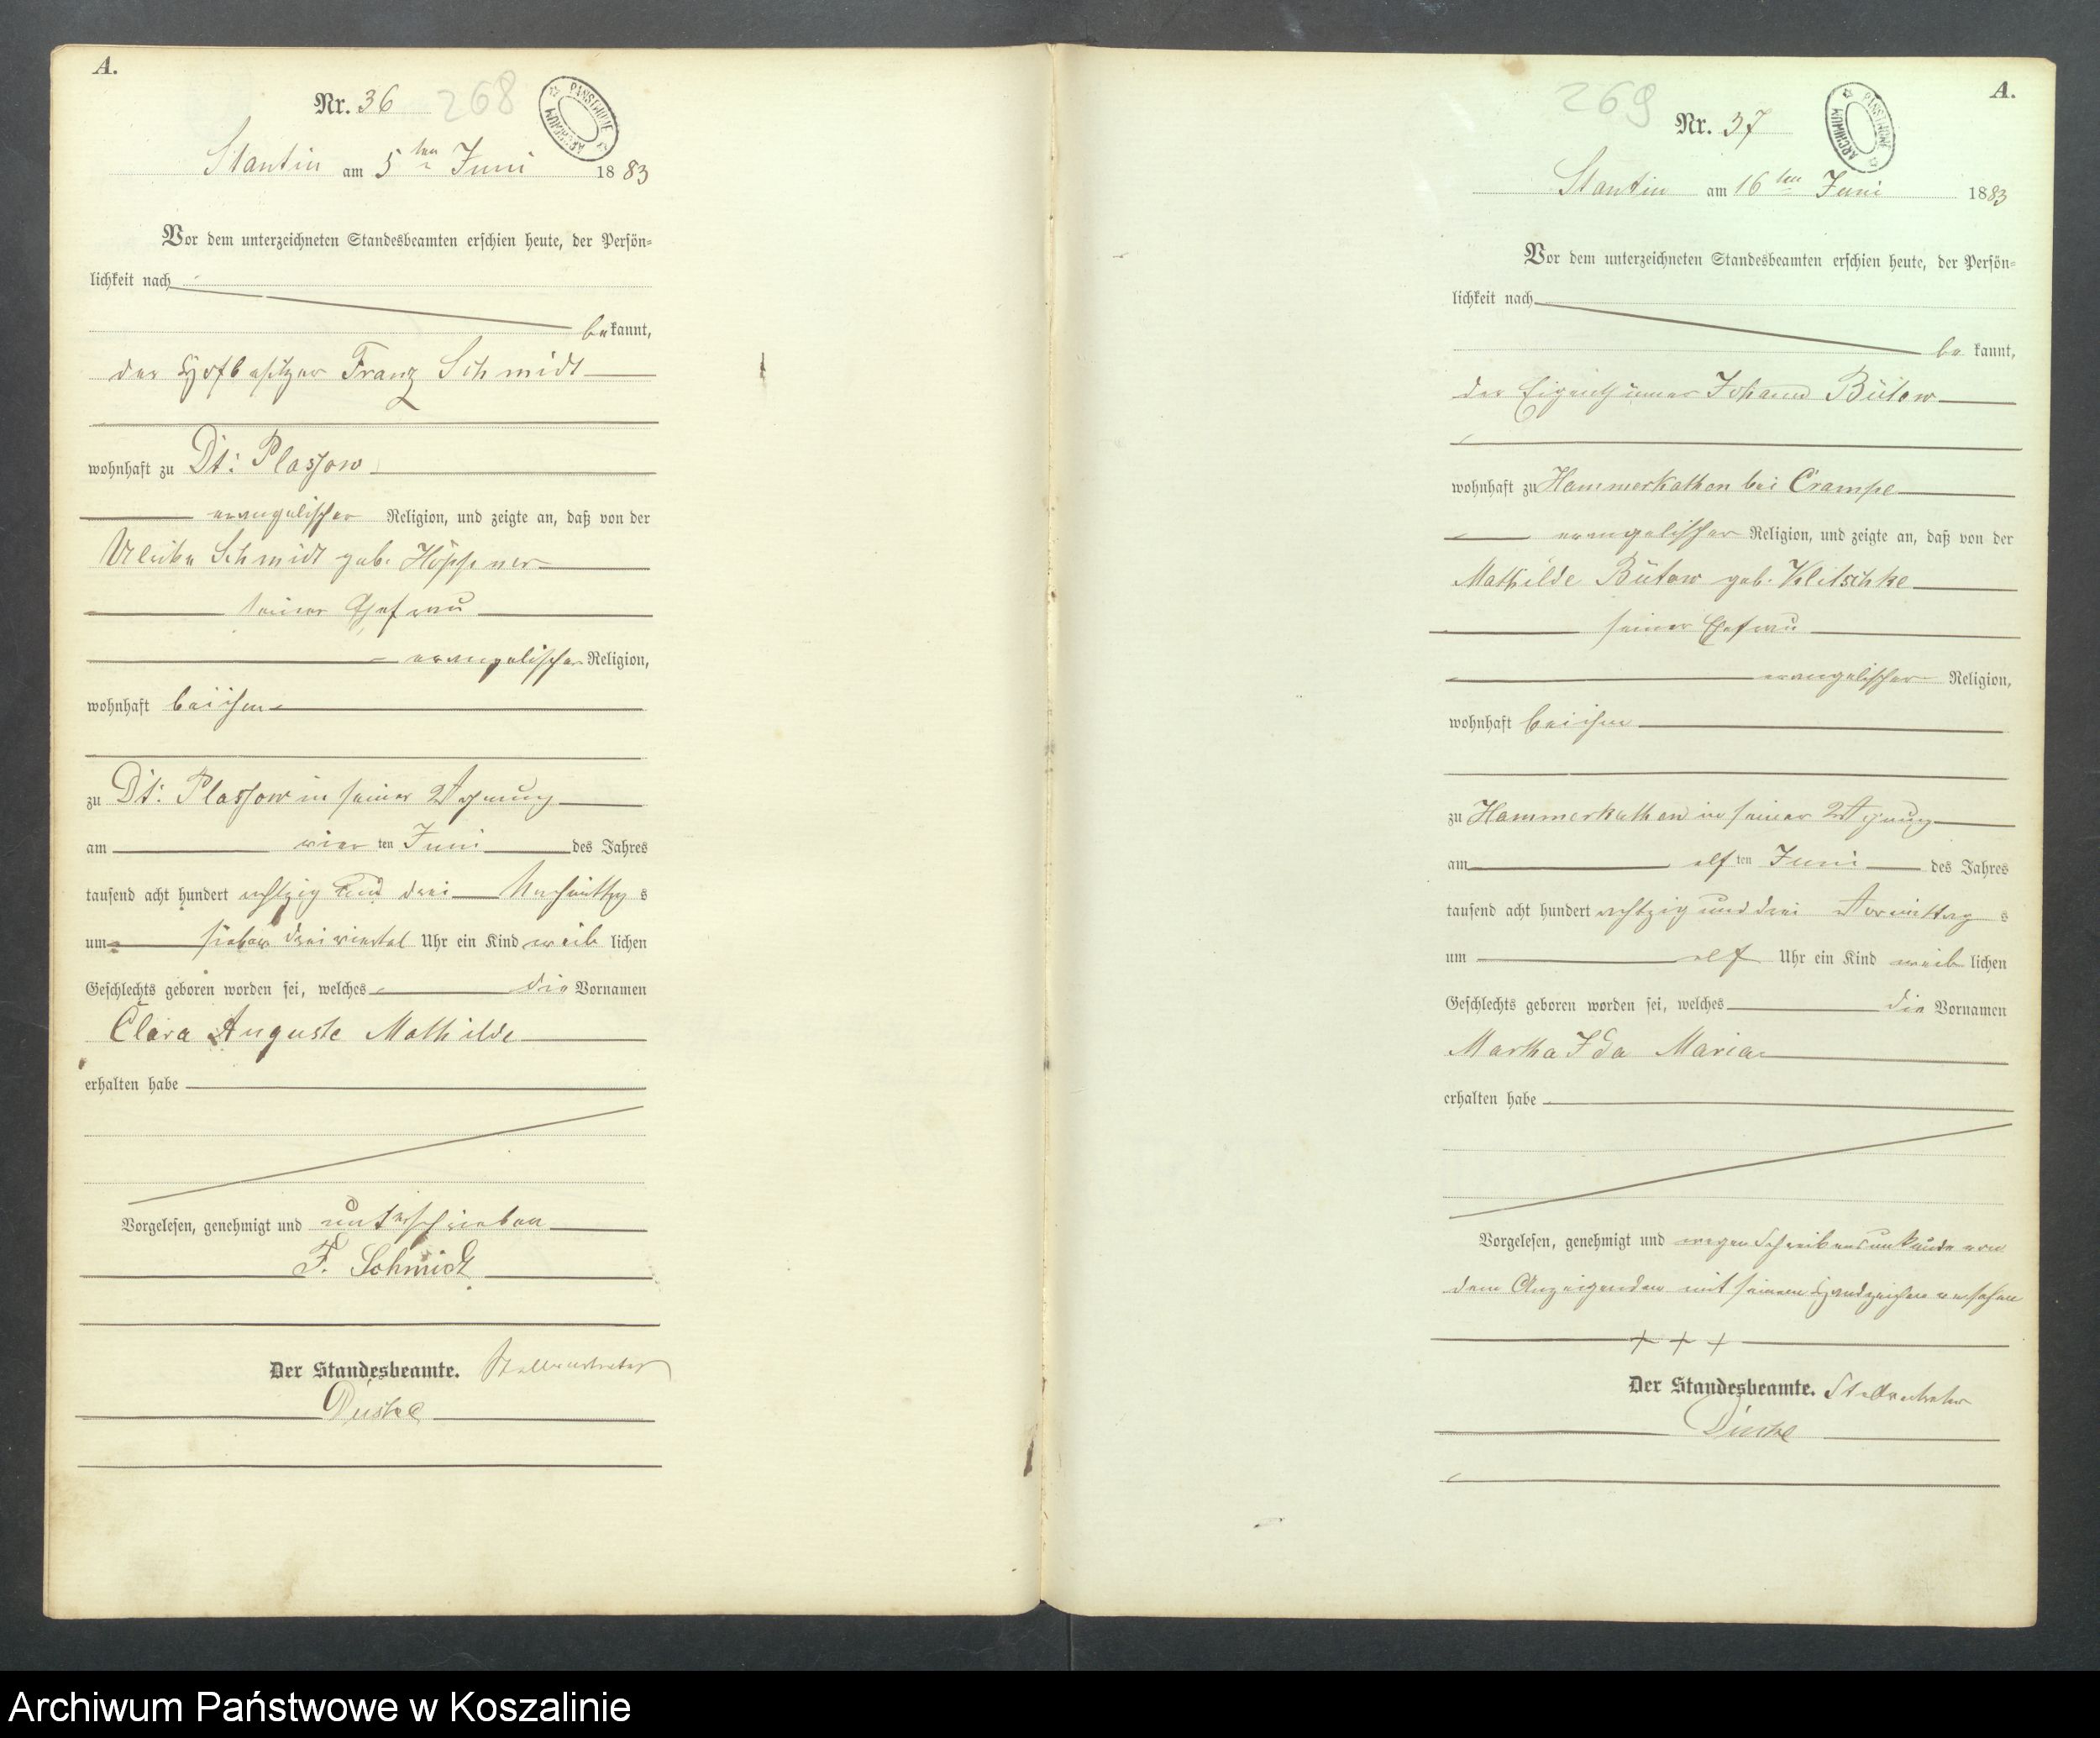 A.
Nr. 36 268
ARCHIWUM PAŃSTWOWE
Stantin am 5ten Juni 1883
Vor dem unterzeichneten Standesbeamten erschien heute, der Persön-
lichkeit nach
bekannt,
der Hofbesitzer Franz Schmidt
wohnhaft zu Dt: Plassow
evangelischer Religion, und zeigte an, daß von der
Ulrike Schmidt geb. Höppner
seiner Ehefrau
evangelischer Religion,
wohnhaft bei ihm
zu Dt: Plassow in seiner Wohnung
am vierten Juni des Jahres
tausend acht hundert achtzig und drei Nachmittags
um sieben dreiviertel Uhr ein Kind weiblichen
Geschlechts geboren worden sei, welches die Vornamen
Clara Auguste Mathilde
erhalten habe
Vorgelesen, genehmigt und unterschrieben
F. Schmidt
Der Standesbeamte. Stellvertreter
A.
269 Nr. 37
ARCHIWUM PAŃSTWOWE
Stantin am 16ten Juni 1883
Vor dem unterzeichneten Standesbeamten erschien heute, der Persön-
lichkeit nach
bekannt,
der Eigenthümer Johann Bütow
wohnhaft zu Hammerkathen bei Crampe
evangelischer Religion, und zeigte an, daß von der
Mathilde Bütow geb. Klitschke
seiner Ehefrau
evangelischer Religion,
wohnhaft bei ihm
zu Hammerkathen in seiner Wohnung
am elften Juni des Jahres
tausend acht hundert achtzig und drei Vormittags
um elf Uhr ein Kind weiblichen
Geschlechts geboren worden sei, welches die Vornamen
Martha Ida Maria
erhalten habe
Vorgelesen, genehmigt und wegen Schreibensunkunde von
dem Anzeigenden mit seinem Handzeichen versehen
+ + +
Der Standesbeamte. Stellvertreter
Archiwum Państwowe w Koszalinie